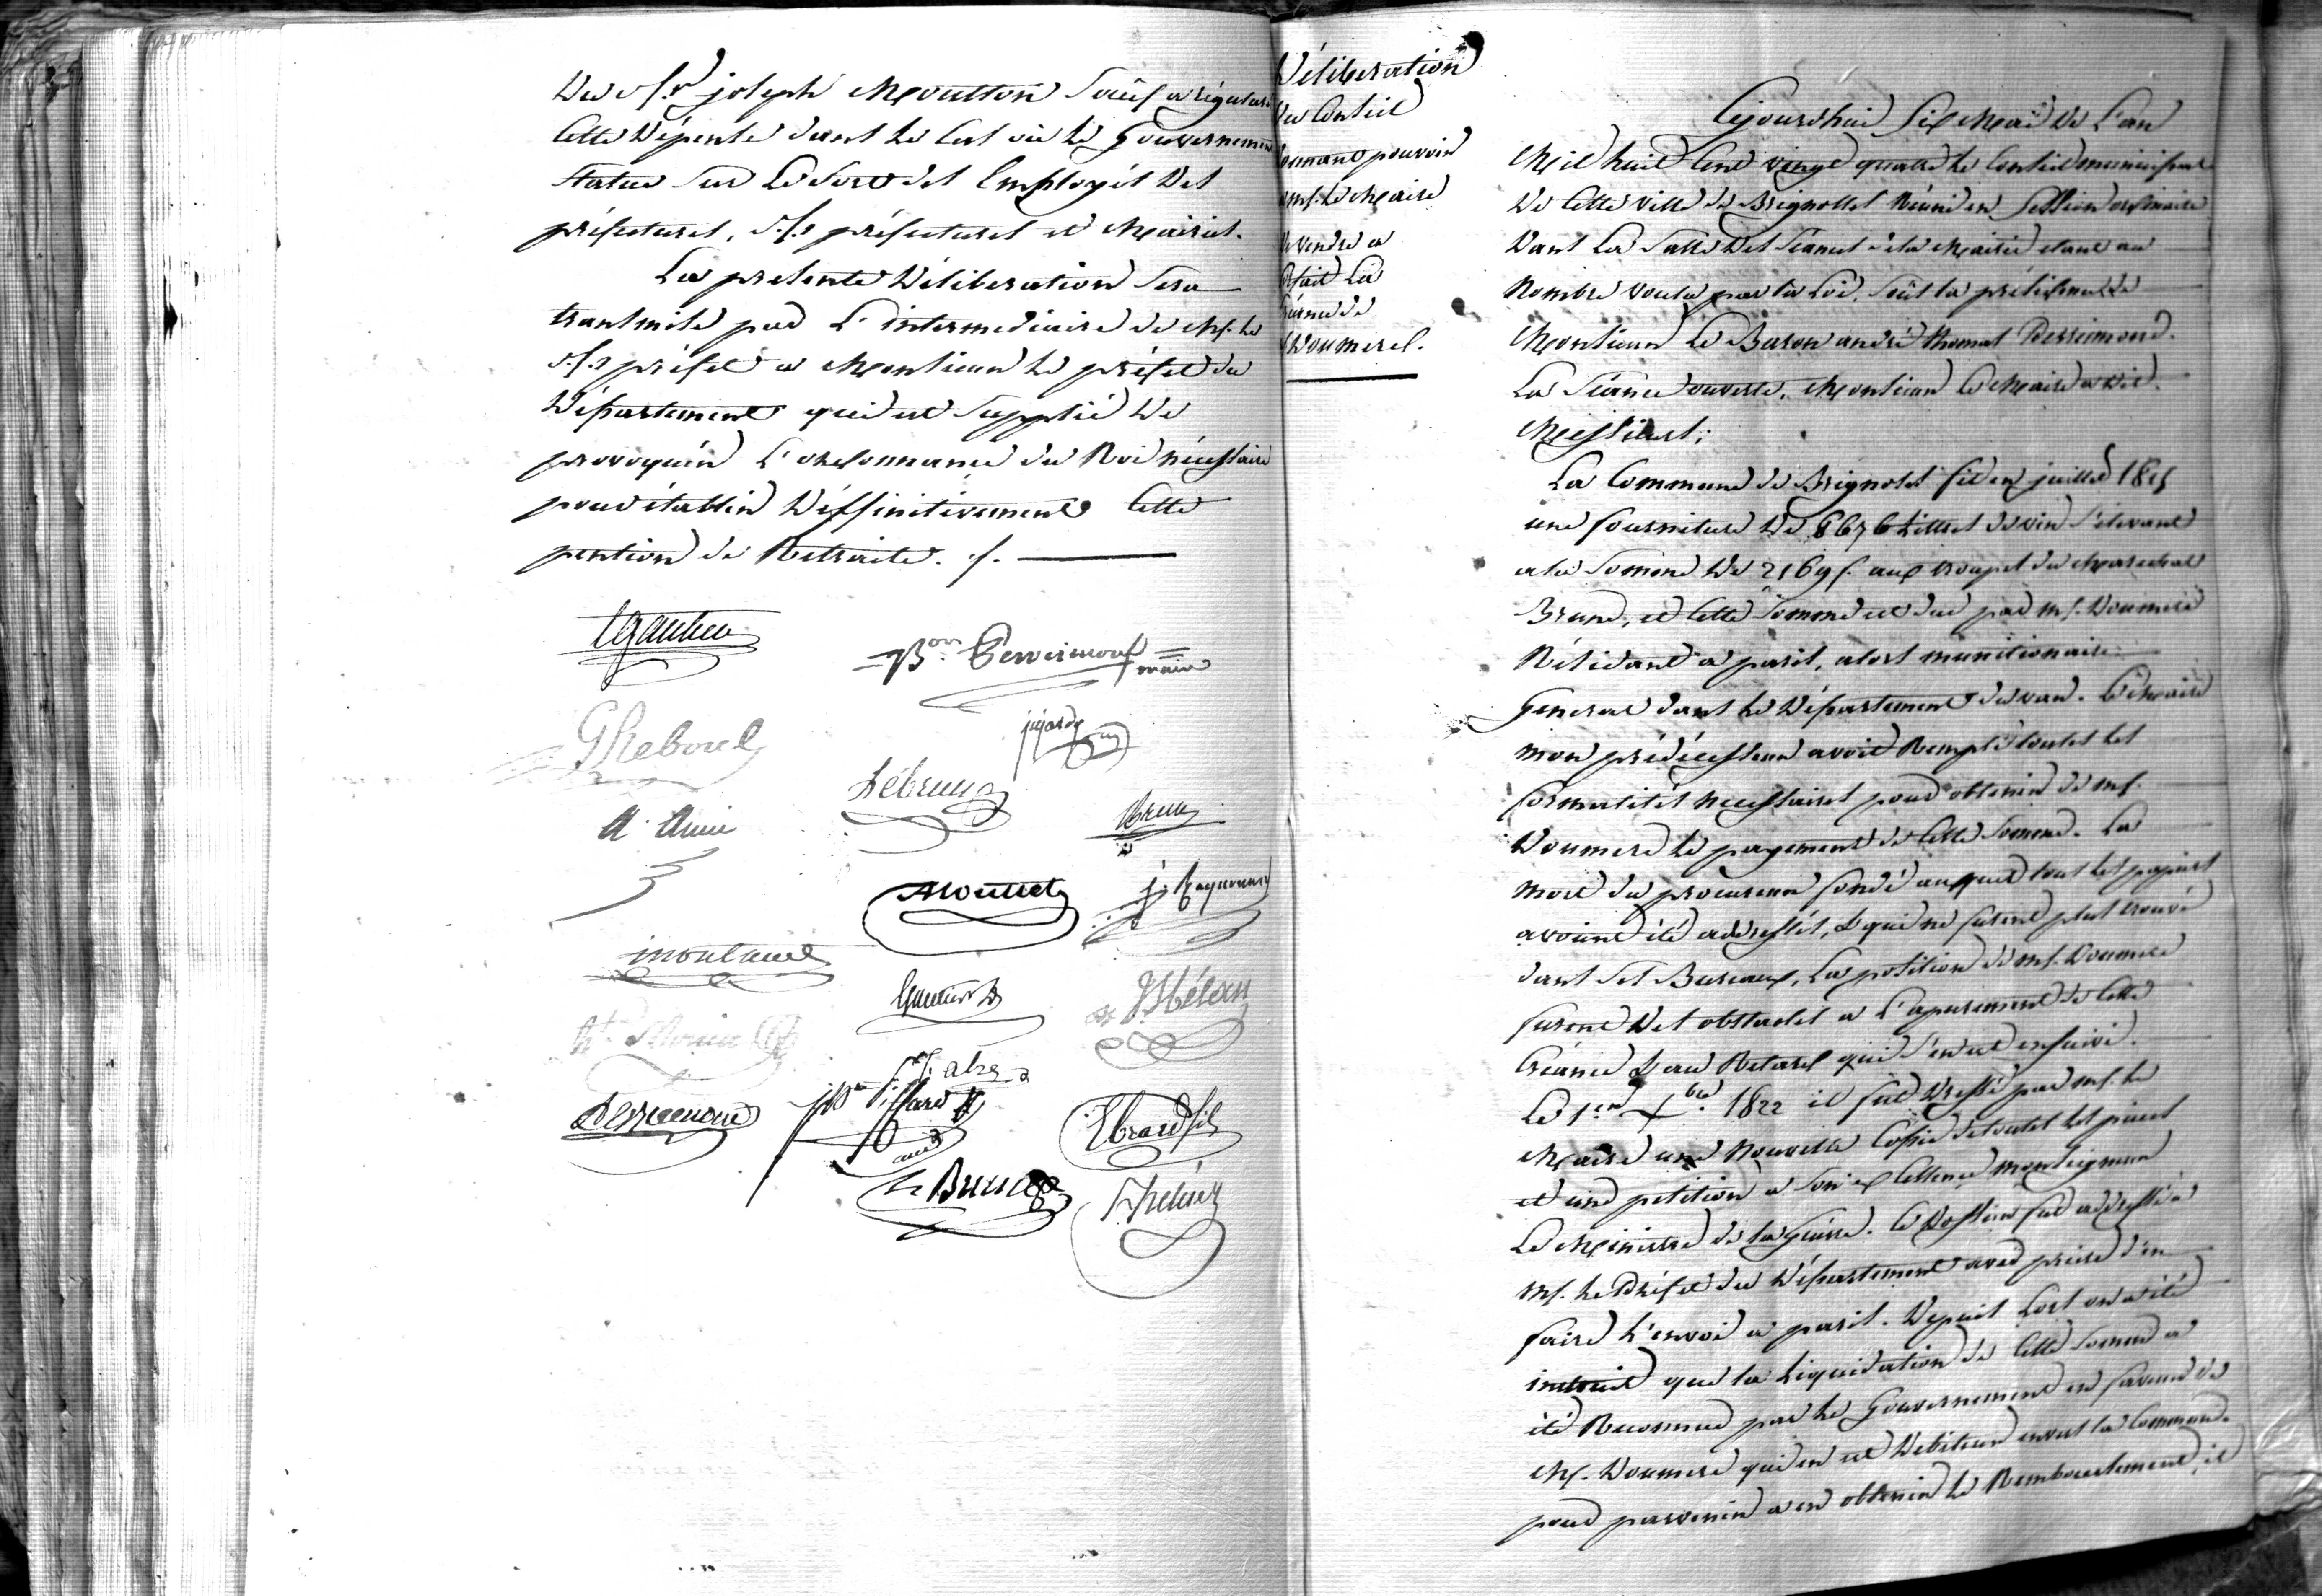 Du Sr. joseph Moutton Sauf a régulariser
Cette Dépense dans le Cas où le Gouvernement
Statue Sur Le Sort des Employés Des
préfectures, S.s préfectures et Mairies.
La présente Déliberation Sera
transmise par L'intermediaire de Mr. le
S.s préfet a Monsieur le préfet du
Département qui est Supplié De
provoquér L'ordonnance du Roi nécessaire
pour établir Déffinitivement Cette
pention de Retraite. /.
Bon. Perreimond
maire
G Reboul
jujardy
Lébrun
A. Amic
Brun
Mouttet
j. Raynouard
montaud
Gautier
Hélan
Perreimond
Ebrard fils
Le Brun
Déliberation
Du Conseil
Donnant pouvoir
a mr. Le Maire
De vendre a
forfait La
Créance de
Doumerel.
Cejourdhui Six Mai De L'an
Mil huit Cent vingt quatre Le Conseil municipal
De Cette ville de Brignolles Réuni en Session ordinaire
Dans La Salle Des Séances de la Mairie etant au
Nombre voulu par la Loi, Sous la présidence de
Monsieur Le Baron andré thomas Perreimond.
La Séance ouverte, Monsieur Le Maire a dit.
Messieurs;
La Commune de Brignoles fit en juillet 1815
une fourniture De 8676 Littres de vin S'élevant
a la Somme De 2169 f. aux troupes du Marechal
Brune, et Cette Somme est due par mr. Doumere
Résidant a paris, alors munitionaire
General dans le Département du var. Le Maire
mon prédécesseur avoit Rempli toutes les
formalités nécessaires pour obtenir de mr.
Doumere le payement de Cette Somme. La
mort du procureur fondé auquel tous les papiers
avoient été addressés, & qui ne furent plus trouvé
dans Ses Bureaux, La position de mr. Doumere
furent Des obstacles a L'apurement de Cette
Créance & au Retard qui S'en est ensuivi.
Le 1er. Xbre. 1822 il fut Dressé par mr. le
Maire une Nouvelle Copie de toutes les pieces
et une petition a Son excellence Monseigneur
Le Ministre de la Guerre. Ce Dossier fut addressé a
mr. Le Préfet du Département avec priere d'en
faire L'envoi a paris. Depuis Lors on a été
instruit que la Liquidation de Cette Somme a
été Reconnue par le Gouvernement en faveur de
Mr. Doumere qui en est Débiteur envers la Commune.
pour parvenir a en obtenir le Remboursement, il